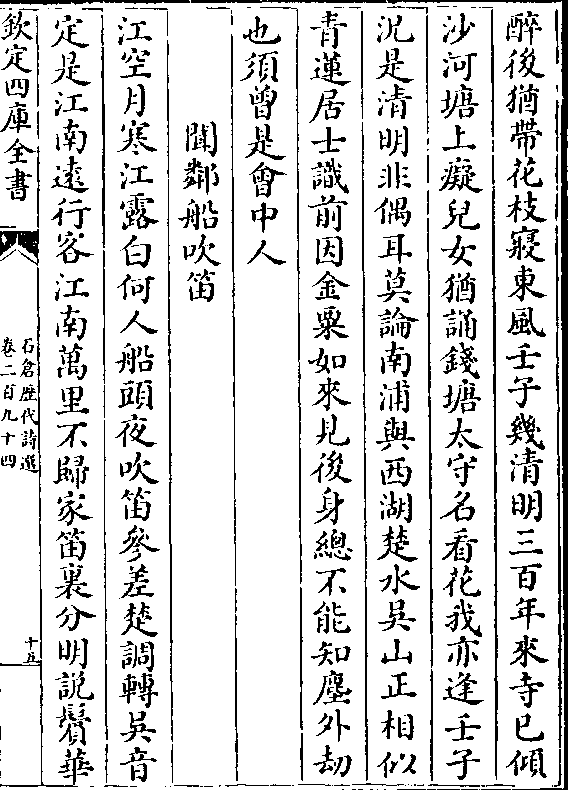 醉後猶帶花枝寢東風壬子幾清明三百年來寺已傾
沙河塘上癡兒女猶誦錢塘太守名看花我亦逢壬子
況是清明非偶耳莫論南浦與西湖楚水吳山正相似
青蓮居士識前因金粟如來見後身總不能知塵外劫
也須曾是會中人
聞鄰船吹笛
江空月寒江露白何人船頭夜吹笛參差楚調轉吳音
定是江南遠行客江南萬里不歸家笛裏分明說鬢華
欽定四庫全書
石倉歴代詩選
卷二百九十四
十五